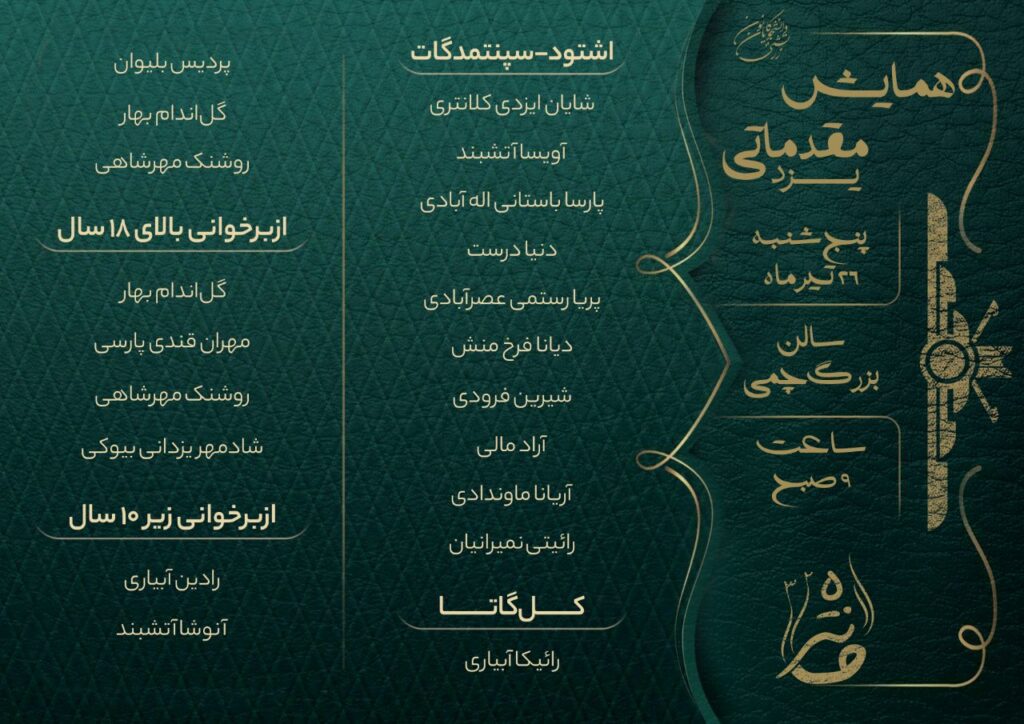 همایش
مقدماتی
یزد
پنج شنبه
۲۶ تیر ماه
سالن
بزرگ چمی
ساعت
۹ صبح
مانتره
۳۲
اشتود-سپنتمدگات
شایان ایزدی کلانتری
آویسا آتشبند
پارسا باستانی اله آبادی
دنیا درست
پریا رستمی عصرآبادی
دیانا فرخ منش
شیرین فرودی
آراد مالی
آریانا ماوندادی
رائیتی نمیرانیان
کل‌گاتا
رائیکا آبیاری
پردیس بلیوان
گل‌اندام بهار
روشنک مهرشاهی
ازبرخوانی بالای ۱۸ سال
گل‌اندام بهار
مهران قندی پارسی
روشنک مهرشاهی
شادمهر یزدانی بیوکی
ازبرخوانی زیر ۱۰ سال
رادین آبیاری
آنوشا آتشبند